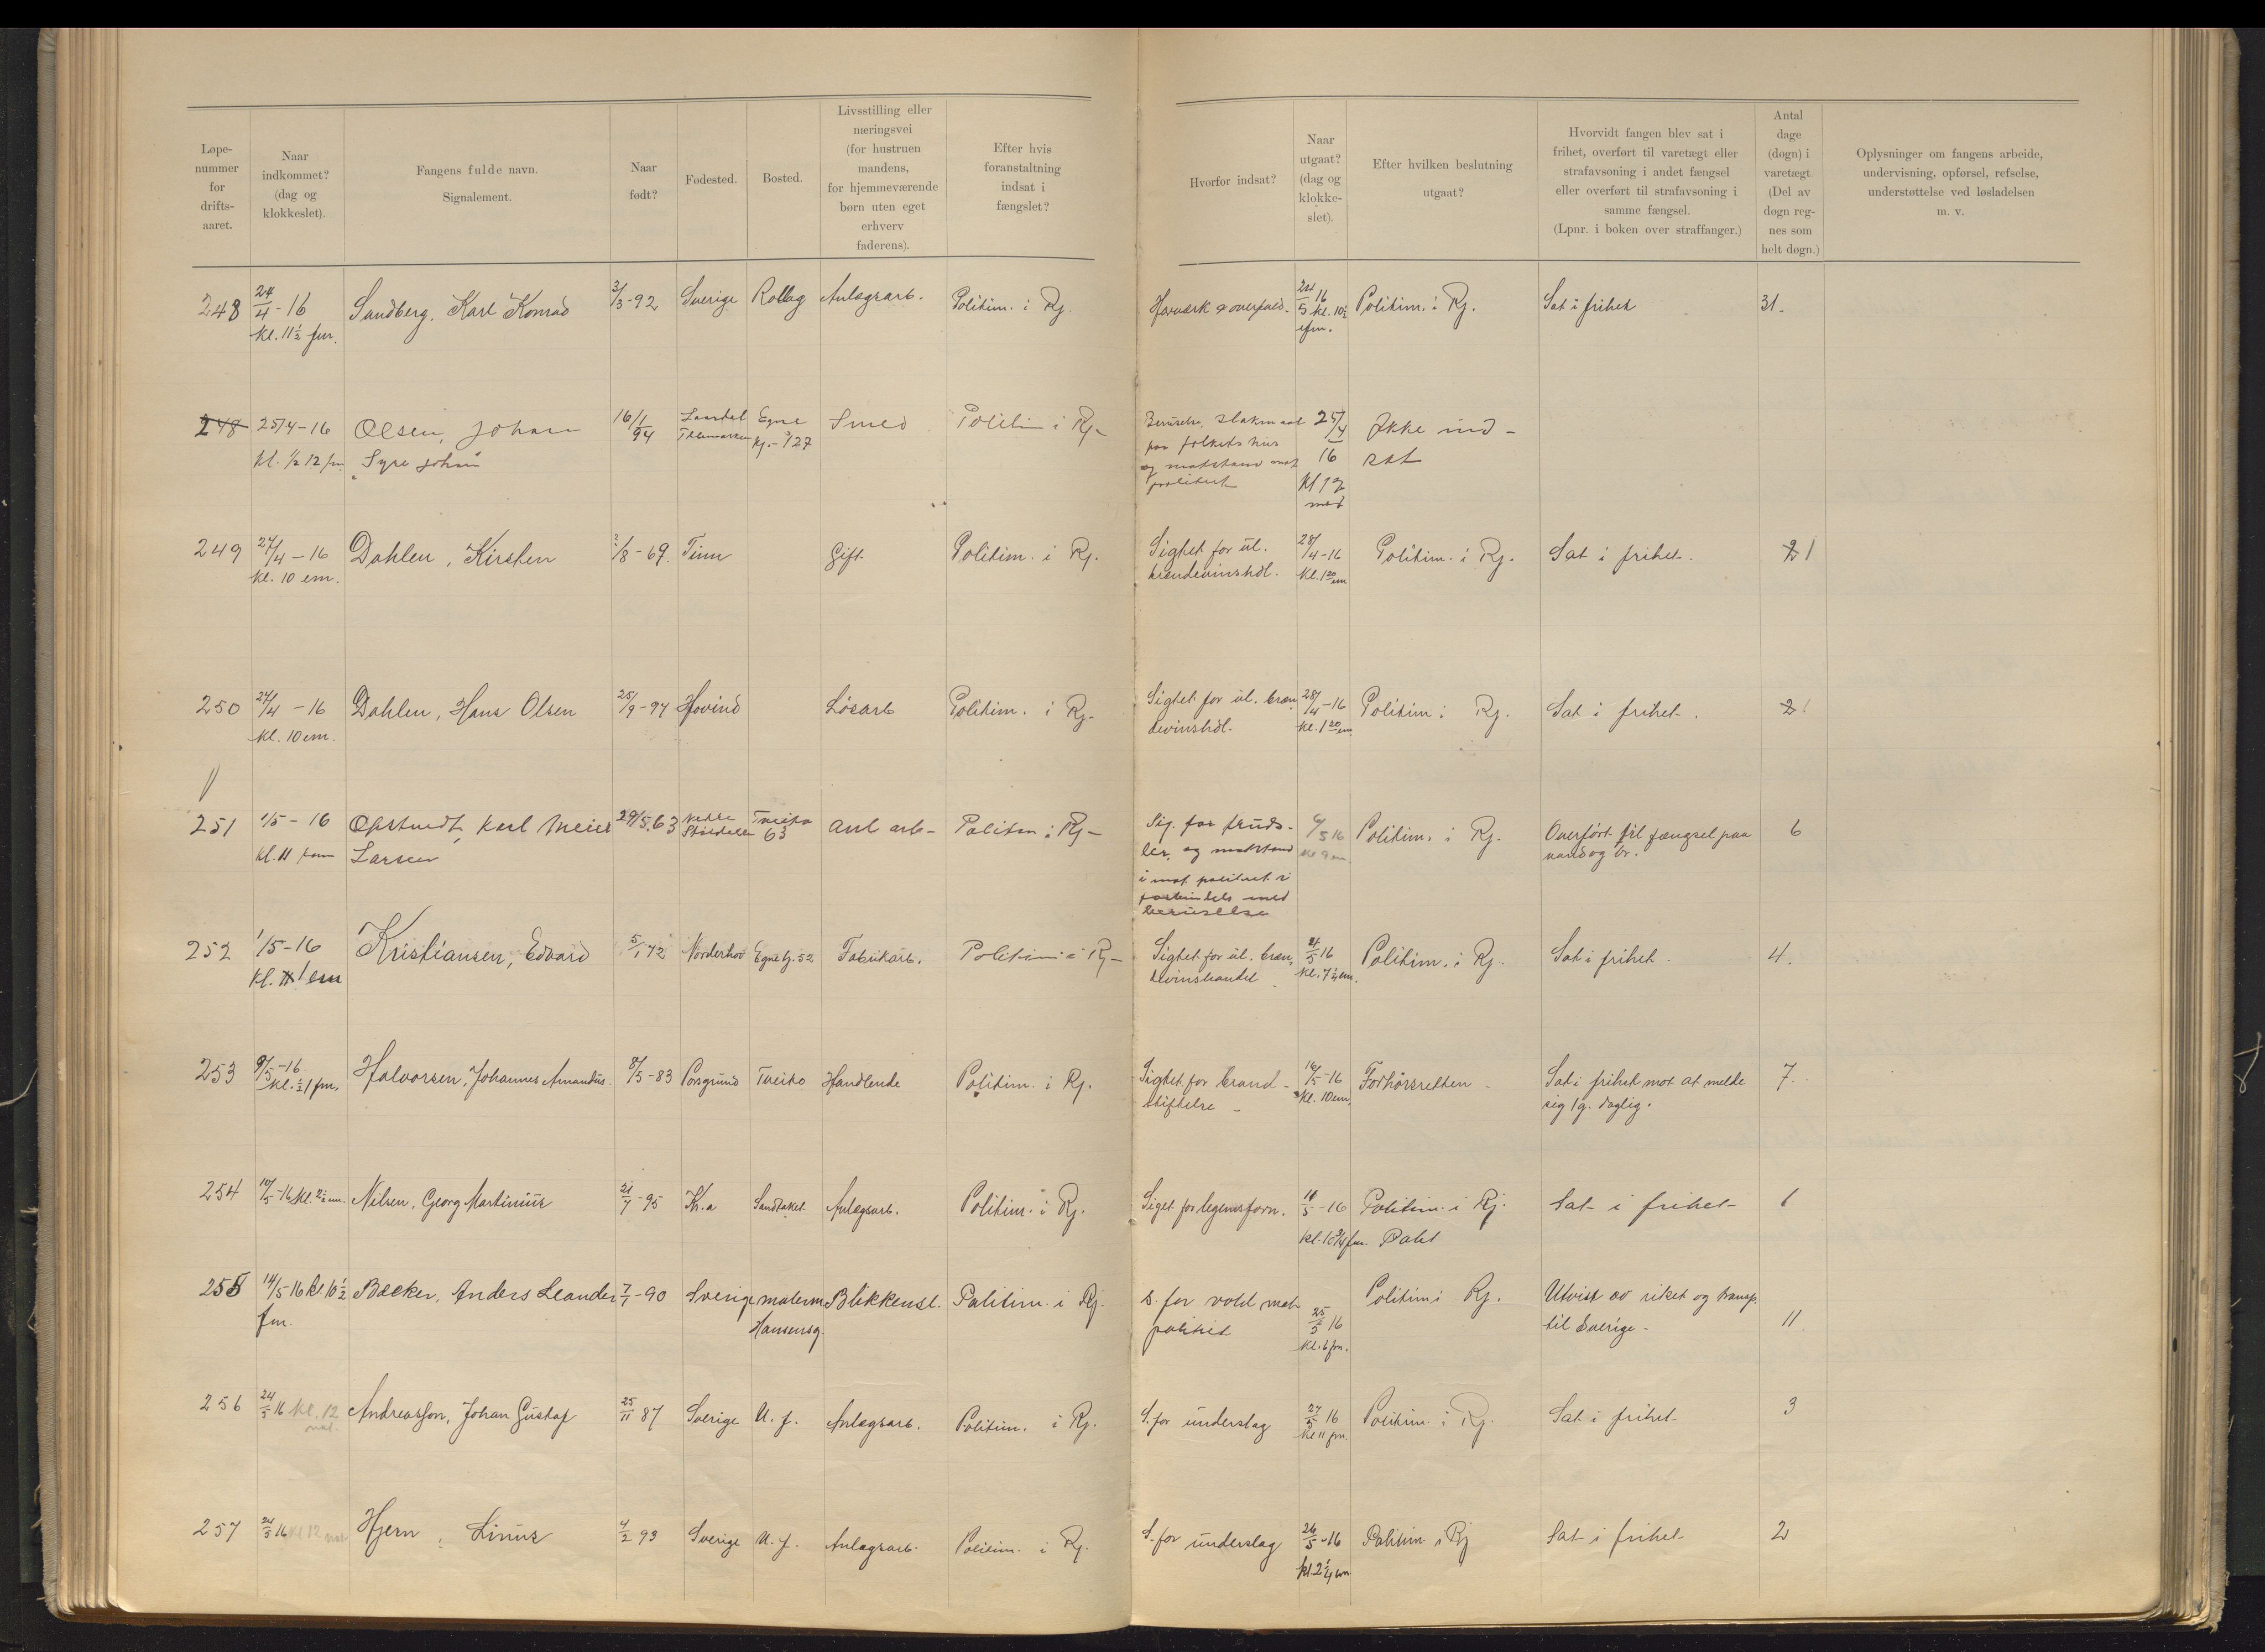 Løpe-
nummer
for
drifts-
aaret.
Naar
indkommet?
(dag og
klokkeslet).
Fangens fulde navn.
Signalement.
Naar
født?
Fødested.
Bosted.
Livsstilling eller
næringsvei
(for hustruen
mandens,
for hjemmeværende
børn uten eget
erhverv
faderens).
Efter hvis
foranstaltning
indsat i
fængslet?
Hvorfor indsat?
Naar
utgaat?
(dag og
klokke-
slet).
Efter hvilken beslutning
utgaat?
Hvorvidt fangen blev sat i
frihet, overført til varetægt eller
strafavsoning i andet fængsel
eller overført til strafavsoning i
samme fængsel.
(Lpnr. i boken over straffanger.)
Antal
dage
(døgn) i
varetægt.
(Del av
døgn reg-
nes som
helt døgn.)
Oplysninger om fangens arbeide,
undervisning, opførsel, refselse,
understøttelse ved løsladelsen
m. v.
248 24/4-16 Sandberg, Karl Konrad 3/3-92 Sverige Rollag Anlægsarb. Politim. i Rj. Hærværk & overfald. 24/5 16 Politim. i Rj. Sat i frihet 31.
kl. 11½ fm. kl. 10½
efm.
248 25/4-16 Olsen, Johan 16/1 94 Laardal Egne Smed Politim i Rj- Beruselse, slaksmaal 25/4 Ikke ind-
Telemarken hj.-127 paa folkets hus
kl. ½12 fm Syre Johan og motstand mot 16 sat
politiet kl 12
med
249 27/4-16 Dahlen, Kirsten 2/8-69 Tinn Gift Politim. i Rj. Sigtet for ul. 28/4-16 Politim. i Rj. Sat i frihet. 1
kl. 10 em. brændevinshdl. kl. 1 20 em
250 27/4-16 Dahlen, Hans Olsen 25/9-97 Hovind Løsarb Politim. i Rj- Sigtet for ul. bræn 28/4-16 Politim i Rj. Sat i frihet. 1
kl. 10 em. devinshdl. kl. 1 20 em.
251 1/5-16 Opstvedt, Karl Meier 29/5.63 Nedre Tveito Anl arb- Politim i Rj- Sig. for truds- 6/5 16 Politim. i Rj. Overført til fængsel paa 6
kl. 11 fm Larsen 63 ler, og motstand kl 9 em. vand og br.
i mot politiet i
forbindels med
beruselse
252 1/5-16 Kristiansen, Edvard 5/1 72 Norderhov Egneh. 52 Fabrikarb. Politim i Rj- Sigtet for ul. bræn- 4/5 16 Politim. i Rj. Sat i frihet. 4.
kl. 1 em devinshandel kl. 7½ em.
253 9/5-16 Halvorsen, Johannes Amandus. 8/5-83 Porsgrund Tveito Handlende Politim. i Rj. Sigtet for brand- 16/5-16 Forhørsretten- Sat i frihet mot at melde 7.
kl. ½1 fm, stiftelse- kl. 10 em. sig 1 g. daglig.
254 10/5-16 kl. 2½ em. Nilsen, Georg Martinius 21/7-95 Kr.a Sandtaket Anlægsarb. Politim. i Rj. Siget for legemsforn. 10/5-16 Politim. i Rj. Sat i frihet- 1
kl. 10¾ fm. Dahl
255 14/5-16 kl. 10½ Becker, Anders Leander 7/1-90 Sverige malerm Blikkensl. Politim. i Rj. S. for vold mot 25/5 16 Politim i Rj. Utvist av riket og transp. 11
fm. Hansensg. politiet kl. 6 fm. til Sverige-
256 24/5 16 kl. 12 Andreasson, Johan Gustaf 25/11 87 Sverige U. f. Anlægsarb. Politim. i Rj. S. for underslag 27/5 16 Politim. i Rj. Sat i frihet- 3
mid. kl 11 fm.
257 24/5 16 kl 12 Hjern, Linus 4/2 93 Sverige U. f. Anlægsarb. Politim. i Rj. S. for underslag 26/5-16 Politim. i Rj Sat i frihet- 2
kl 2¼ em